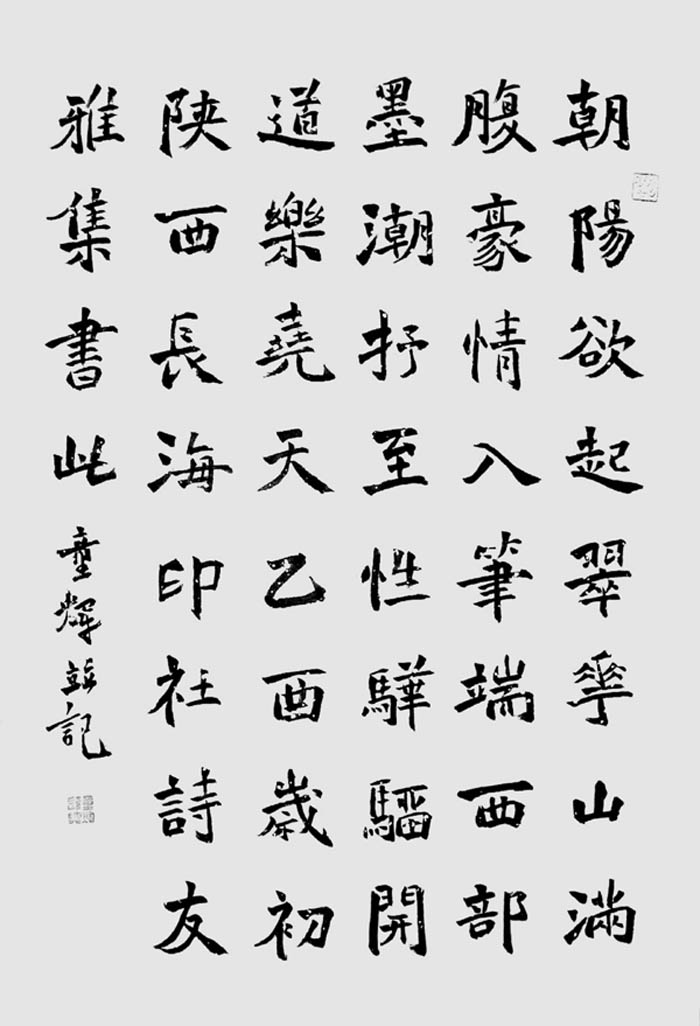 朝陽欲起翠華山滿
腹豪情入筆端西部
墨潮抒至性驊騮開
道樂堯天乙酉歲初
陕西長海印社詩友
雅集書此童輝竝記